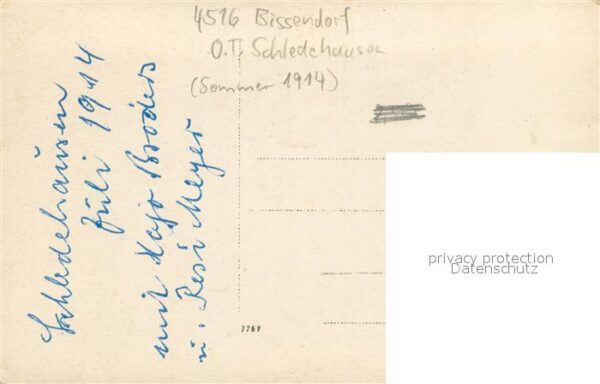 4516 Bissendorf
O.T. Schledehausen
(Sommer 1914)
Schledehausen
Juli 1914
mit Kajo Broders
u. Resi Meyer
1761
privacy protection
Datenschutz